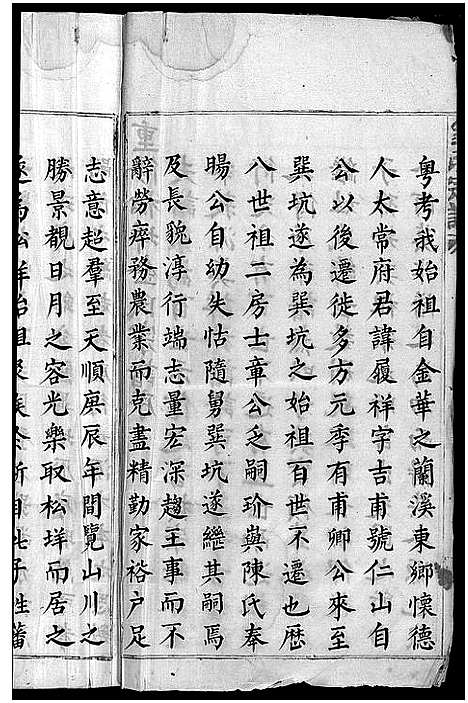 粵考我始祖自金華之蘭溪東鄉懷德
人太常府君諱履祥字吉甫號仁山自
公以後遷徙多方元季有甫卿公來至
巽坑遂為巽坑之始祖百世不遷也歷
八世祖二房士章公乏嗣玠與陳氏奉
暘公自幼失怙隨舅巽坑遂繼其嗣焉
及長貌淳行端志量宏深趨王事而不
辭勞瘁務農業而克盡精勤家裕户足
志意超羣至天順庚辰年間覽山川之
勝景觀日月之容光樂取松垟而居之
遂為松垟始祖及族於斯自此子姓蕃
重